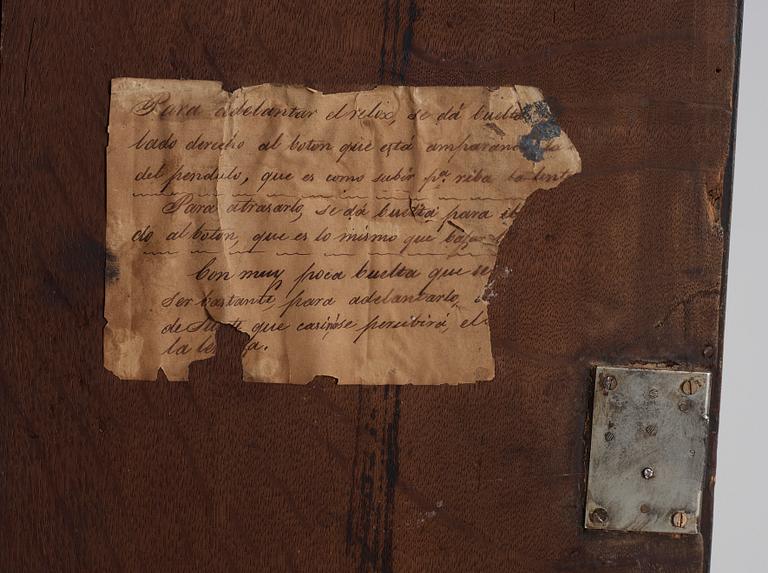 Para adelantar el relox, se dá buelta
lado derecho al boton que está amparan
del pendulo, que es como subir pª. riba la lent
Para atrasarlo, se dá buelta para el
do al boton, que es lo mismo que bajar
Con muy poca buelta que se
ser bastante, para adelantarlo,
de Suerte que casi nose percibirá, el
la le